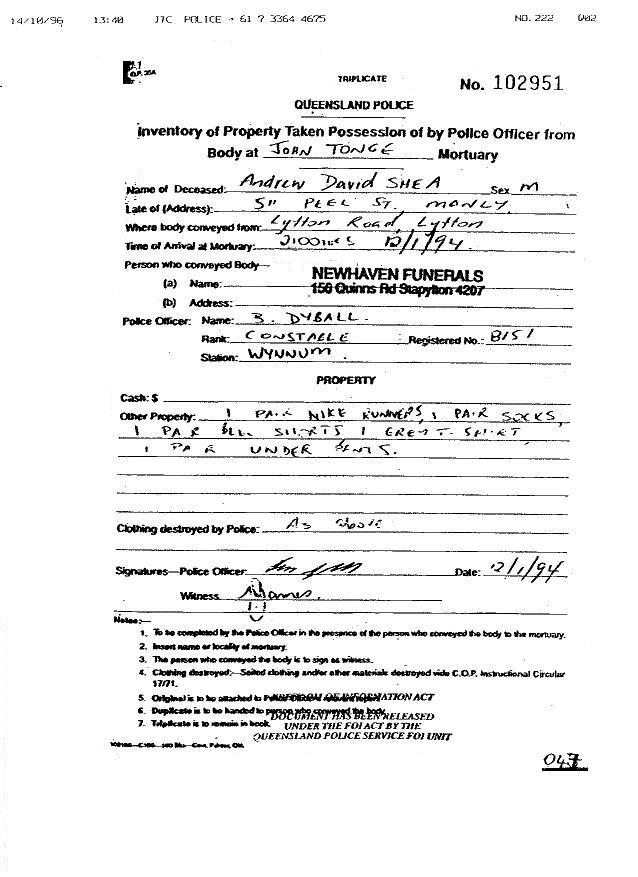 14/10/96 13:40 J7C POLICE → 61 7 3364 4675 NO. 222 002
Q.P. 35A
TRIPLICATE
No. 102951
QUEENSLAND POLICE
Inventory of Property Taken Possession of by Police Officer from
Body at JOHN TONGE Mortuary
Name of Deceased: Andrew David SHEA Sex M
Late of (Address): PEEL ST. MANLY
Where body conveyed from: Lytton Road, Lytton
Time of Arrival at Mortuary: 2100HRS 12/1/94
Person who conveyed Body—
NEWHAVEN FUNERALS
(a) Name:
156 Quinns Rd Stapylton 4207
(b) Address:
Police Officer: Name: B. DYBALL.
Rank: CONSTABLE Registered No.: 8151
Station: WYNNUM.
PROPERTY
Cash: $
Other Property: 1 PAIR NIKE RUNNERS, 1 PAIR SOCKS,
1 PAIR SHORTS 1 GREY T-SHIRT
1 PAIR UNDER PANTS.
Clothing destroyed by Police: As above
Signatures—Police Officer: Date: 12/1/94
Witness
Notes:—
1. To be completed by the Police Officer in the presence of the person who conveyed the body to the mortuary.
2. Insert name or locality of mortuary.
3. The person who conveyed the body is to sign as witness.
4. Clothing destroyed:—Soiled clothing and/or other materials destroyed vide C.O.P. Instructional Circular
17/71.
5. Original is to be attached to
FREEDOM OF INFORMATION ACT
6. Duplicate is to be handed to person who conveyed the body.
DOCUMENT HAS BEEN RELEASED
7. Triplicate is to remain in book.
UNDER THE FOI ACT BY THE
QUEENSLAND POLICE SERVICE FOI UNIT
047